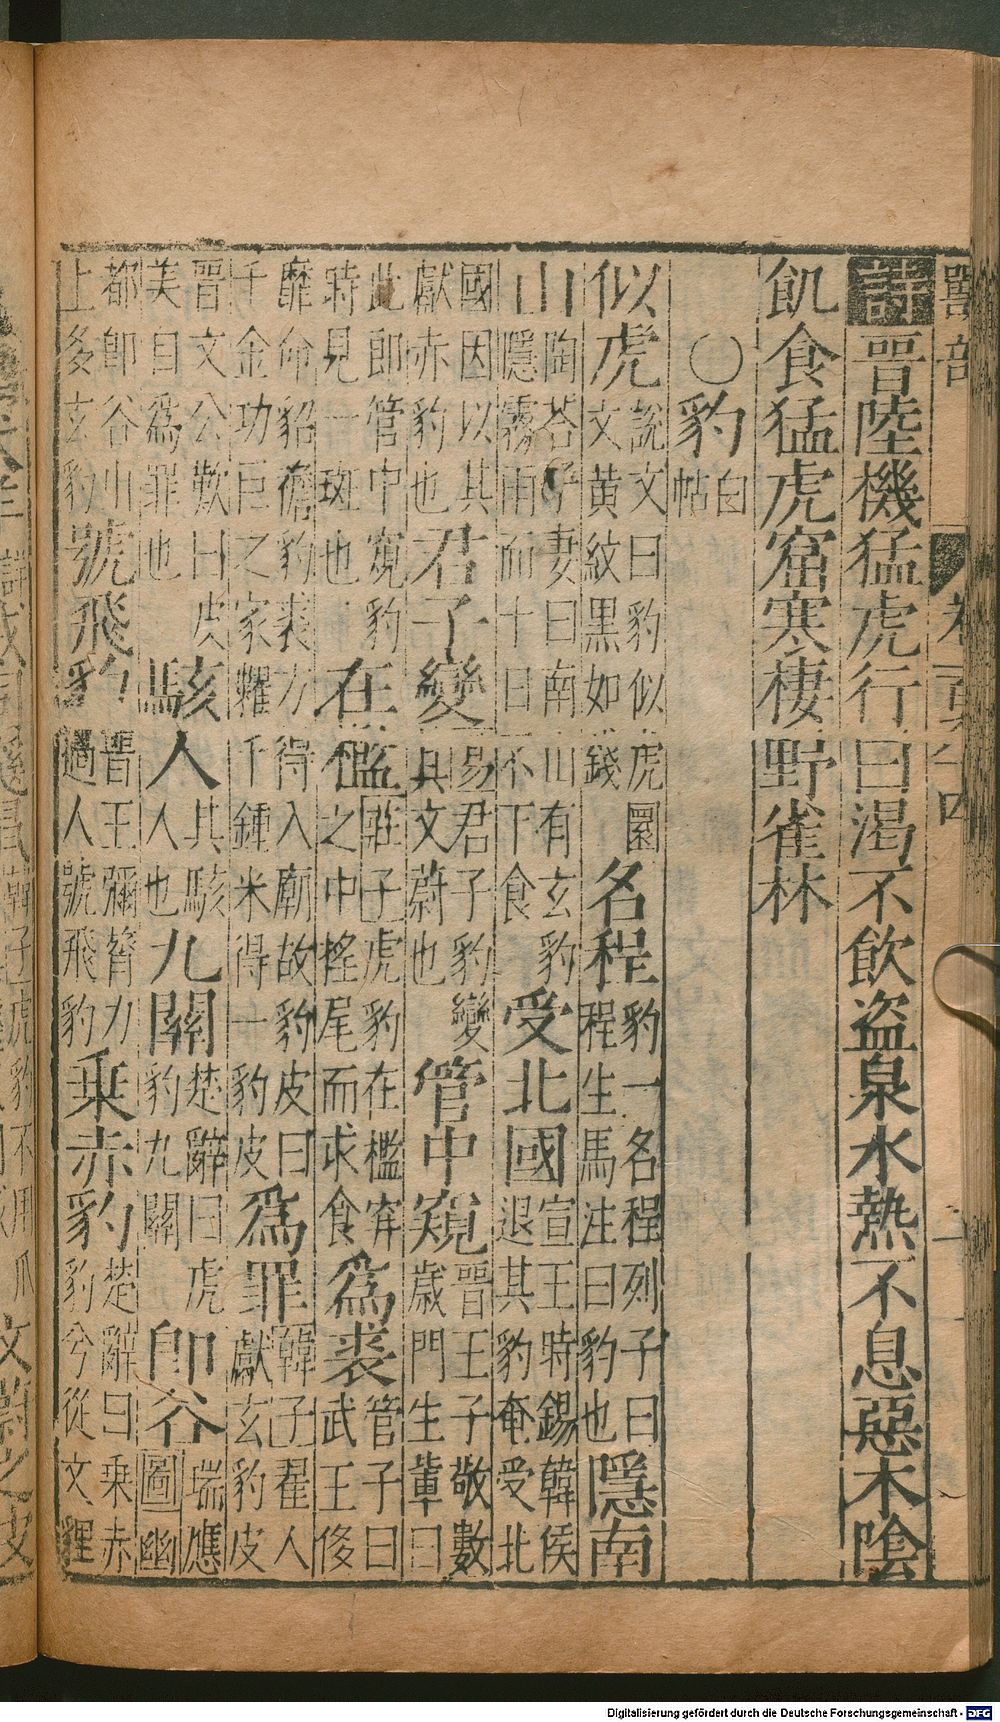 獸部 卷一百八十四
詩晉陸機猛虎行曰渴不飲盜泉水熱不息惡木陰
飢食猛虎窟寒棲野雀林
○豹白帖
似虎說文曰豹似虎圜文黃紋黑如錢名程豹一名程列子曰程生馬注曰豹也隱南
山陶荅子妻曰南山有玄豹隱霧雨而十日不下食受北國宣王時錫韓侯退其豹奄受北
國因以其獻赤豹也君子變易君子豹變其文蔚也管中窺晉王子敬數歲門生輩曰
此郎管中窺豹時見一斑也在檻莊子虎豹在檻穽之中搖尾而求食爲裘管子曰武王俊
靡命貂襜豹裘方得入廟故豹皮千金功臣之家糶千鍾米得一豹皮爲罪韓子翟人獻玄豹皮
晉文公歎曰皮美自爲罪也駭人其駭人人也九關楚辭曰虎豹九關即谷瑞應圖幽
都即谷山上多玄豹號飛豹晉王彌膂力過人號飛豹乘赤豹楚辭曰乘赤豹兮從文貍
Digitalisierung gefördert durch die Deutsche Forschungsgemeinschaft - DFG